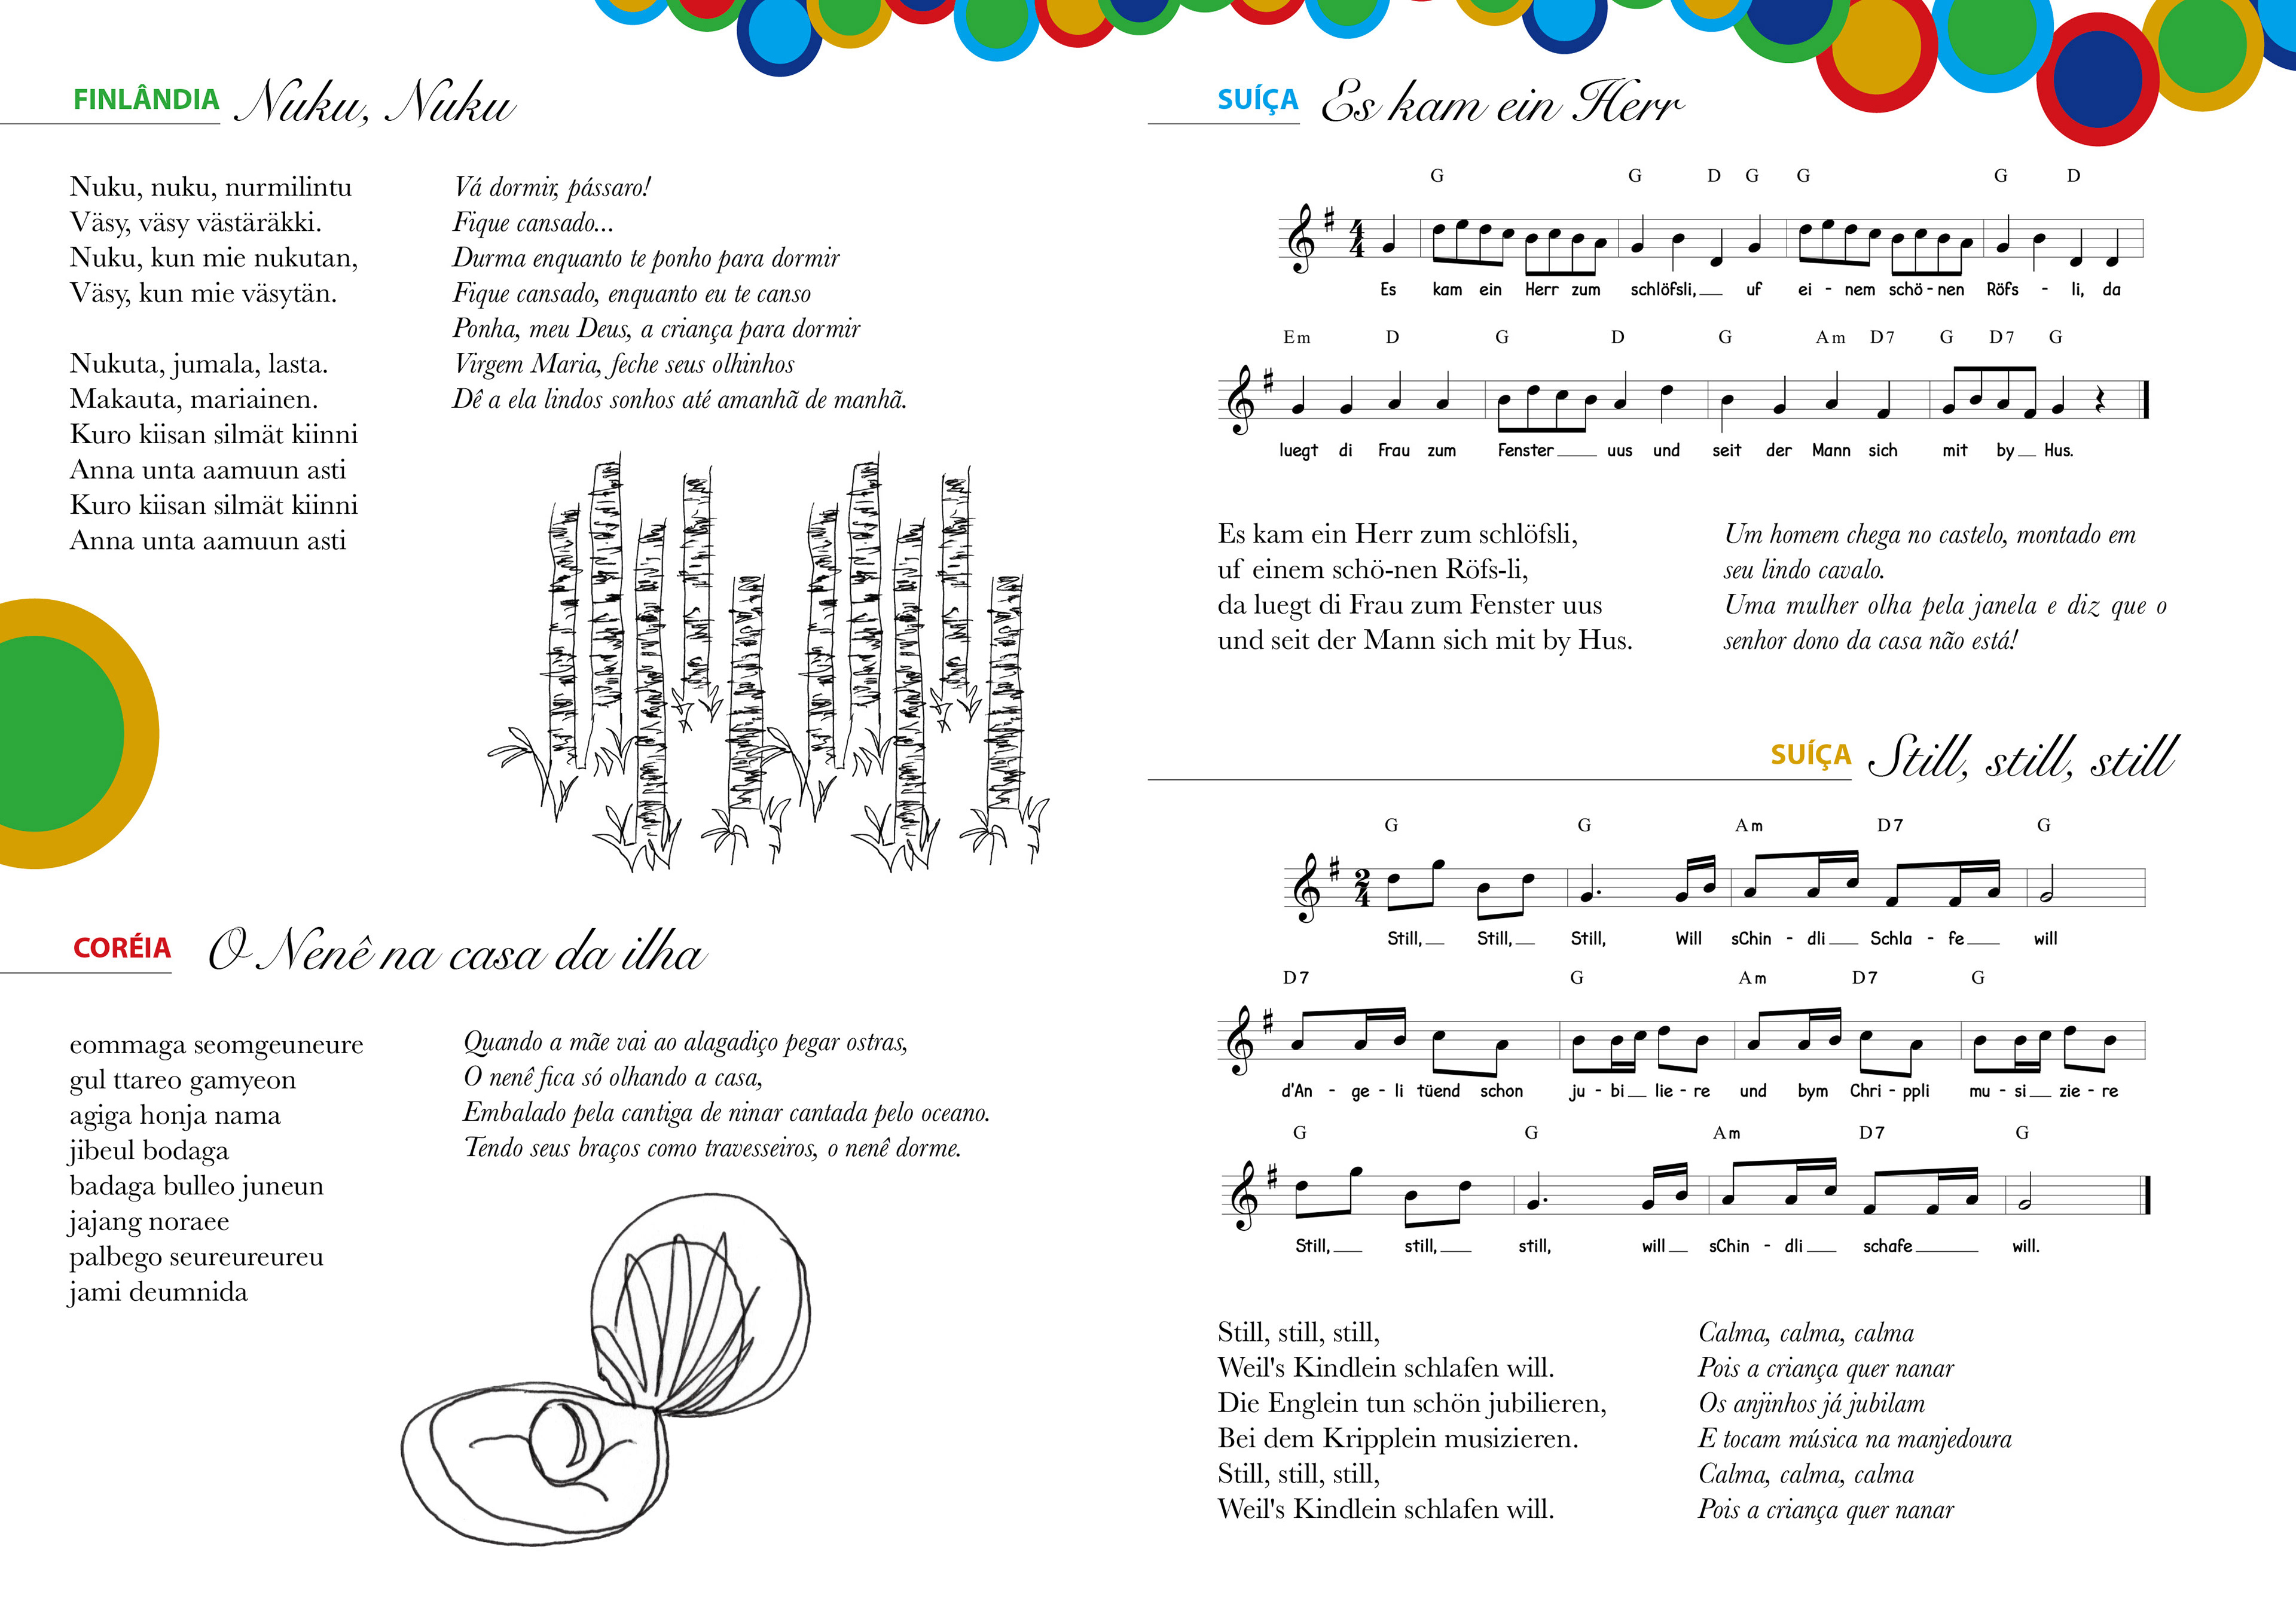 FINLÂNDIA Nuku, Nuku
Nuku, nuku, nurmilintu
Väsy, väsy västäräkki.
Nuku, kun mie nukutan,
Väsy, kun mie väsytän.
Nukuta, jumala, lasta.
Makauta, mariainen.
Kuro kiisan silmät kiinni
Anna unta aamuun asti
Kuro kiisan silmät kiinni
Anna unta aamuun asti
Vá dormir, pássaro!
Fique cansado...
Durma enquanto te ponho para dormir
Fique cansado, enquanto eu te canso
Ponha, meu Deus, a criança para dormir
Virgem Maria, feche seus olhinhos
Dê a ela lindos sonhos até amanhã de manhã.
CORÉIA O Nenê na casa da ilha
eommaga seomgeuneure
gul ttareo gamyeon
agiga honja nama
jibeul bodaga
badaga bulleo juneun
jajang noraee
palbego seureureureu
jami deumnida
Quando a mãe vai ao alagadiço pegar ostras,
O nenê fica só olhando a casa,
Embalado pela cantiga de ninar cantada pelo oceano.
Tendo seus braços como travesseiros, o nenê dorme.
SUÍÇA Es kam ein Herr
G G D G G G D
4 4
Es kam ein Herr zum schlöfsli,__ uf ei - nem schö - nen Röfs - li, da
Em D G D G Am D7 G D7 G
luegt di Frau zum Fenster____ uus und seit der Mann sich mit by__ Hus.
Es kam ein Herr zum schlöfsli,
uf einem schö-nen Röfs-li,
da luegt di Frau zum Fenster uus
und seit der Mann sich mit by Hus.
Um homem chega no castelo, montado em
seu lindo cavalo.
Uma mulher olha pela janela e diz que o
senhor dono da casa não está!
SUÍÇA Still, still, still
G G Am D7 G
2 4
Still,__ Still,__ Still, Will sChin - dli__ Schla - fe__ will
D7 G Am D7 G
d'An - ge - li tüend schon ju - bi__ lie - re und bym Chri - ppli mu - si__ zie - re
G G Am D7 G
Still,__ still,__ still, will__ sChin - dli__ schafe____ will.
Still, still, still,
Weil's Kindlein schlafen will.
Die Englein tun schön jubilieren,
Bei dem Kripplein musizieren.
Still, still, still,
Weil's Kindlein schlafen will.
Calma, calma, calma
Pois a criança quer nanar
Os anjinhos já jubilam
E tocam música na manjedoura
Calma, calma, calma
Pois a criança quer nanar